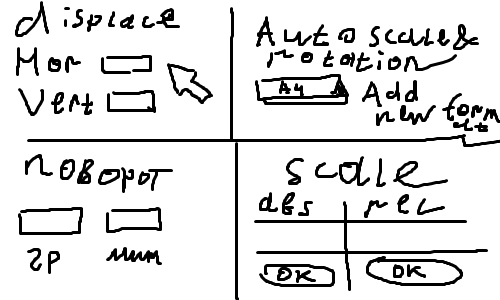 displace
Hor
Vert
Auto scale &
rotation
Add
new format
поворот
гр мин
scale
abs rel
OK OK